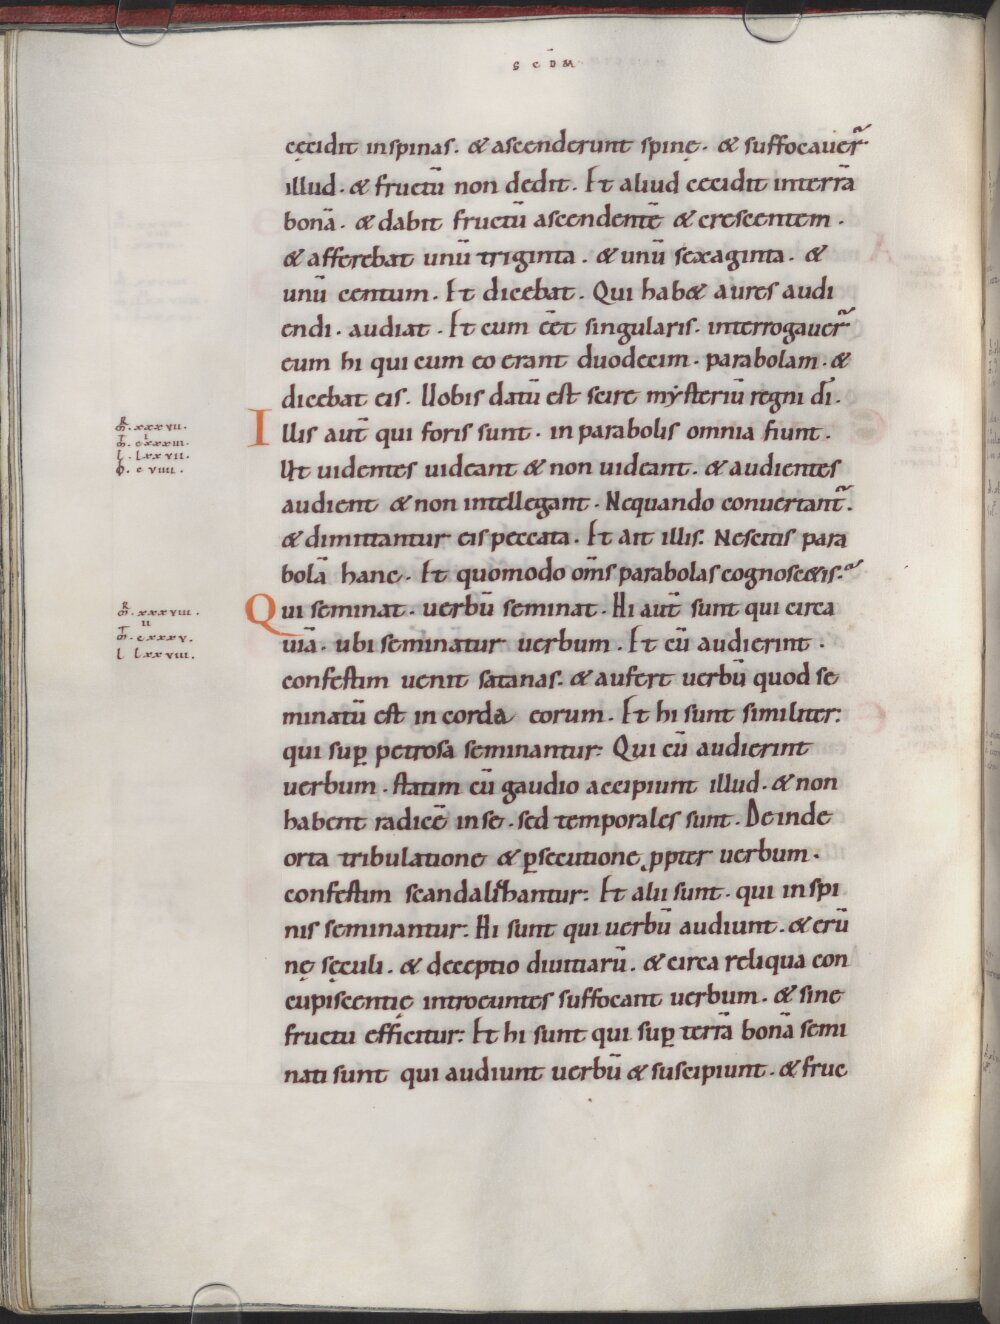 S C D M̄
cęcidit in spinas. & ascenderunt spinę. & suffocauer̃
illud. & fructū non dedit. Et aliud cecidit in terrā
bonā. & dabit fructū ascendentē & crescentem.
& afferebat unū triginta. & unū sexaginta. &
unū centum. Et dicebat. Qui hab& aures audi
endi. audiat. Et cum eēt singularis. interrogauer̃
eum hi qui cum eo erant duodecim. parabolam. &
dicebat eis. Uobis datū est scire mẏsteriū regni dī.
Illis aut̄ qui foris sunt. in parabolis omnia fiunt.
Ut uidentes uideant & non uideant. & audientes
audient & non intellegant. Nequando conuertant̃.
& dimittantur eis peccata. Et ait illis. Nescitis para
bolā hanc. Et quomodo om̄s parabolas cognosc&is.
Qui seminat. uerbū seminat. Hi aut̄ sunt qui circa
uiā. ubi seminatur uerbum. Et cū audierint.
confestim uenit satanas. & aufert uerbū quod se
minatū est in corda eorum. Et hi sunt similiter:
qui suꝑ petrosa seminantur: Qui cū audierint
uerbum. statim cū gaudio accipiunt illud. & non
habent radicē in se. sed temporales sunt. Deinde
orta tribulatione & ꝑsecutione ꝓpter uerbum.
confestim scandalibantur: Et alii sunt. qui in spi
nis seminantur: Hi sunt qui uerbū audiunt. & erū
nę sęculi. & deceptio diuitiarū. & circa reliqua con
cupiscentię introeuntes suffocant uerbum. & sine
fructu efficitur: Et hi sunt qui suꝑ terrā bonā semi
nati sunt qui audiunt uerbū & suscipiunt. & fruc
R
m̄. xxxvii.
I
m̄. cxxxiii.
l. lxxvii.
ꝯ. cviiii.
R
m̄. xxxviii.
II
m̄. cxxxv.
l lxxviii.